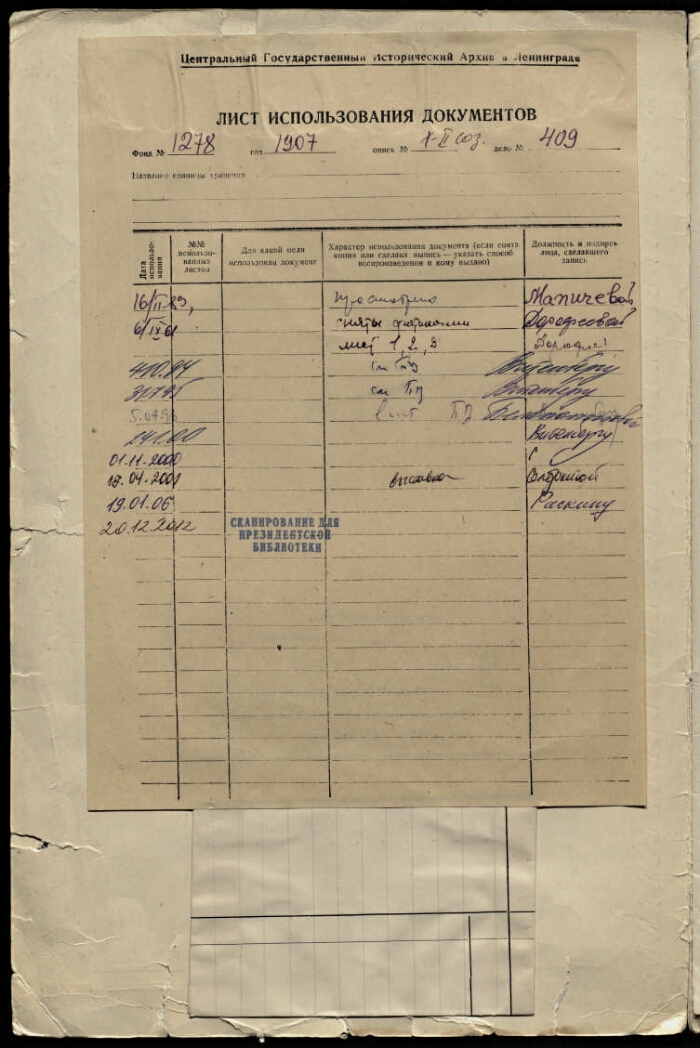 Центральный Государственный Исторический Архив в Ленинграде
ЛИСТ ИСПОЛЬЗОВАНИЯ ДОКУМЕНТОВ
Фонд № 1278 год 1907 опись № I-II соз. дело № 409
Название единицы хранения
Дата использования
№№ использованных листов
Для какой цели использован документ
Характер использования документа (если снята копия или сделана выпись — указать способ воспроизведения и кому выдано)
Должность и подпись лица, сделавшего запись
просмотрено Мапичевой
6/IX 61 сняты фотокопии
лист 1, 2, 3
см
см
лист
01.11.2000
18.04.2001 выставка
19.01.06 Раскину
20.12.2012 СКАНИРОВАНИЕ ДЛЯ
ПРЕЗИДЕНТСКОЙ
БИБЛИОТЕКИ